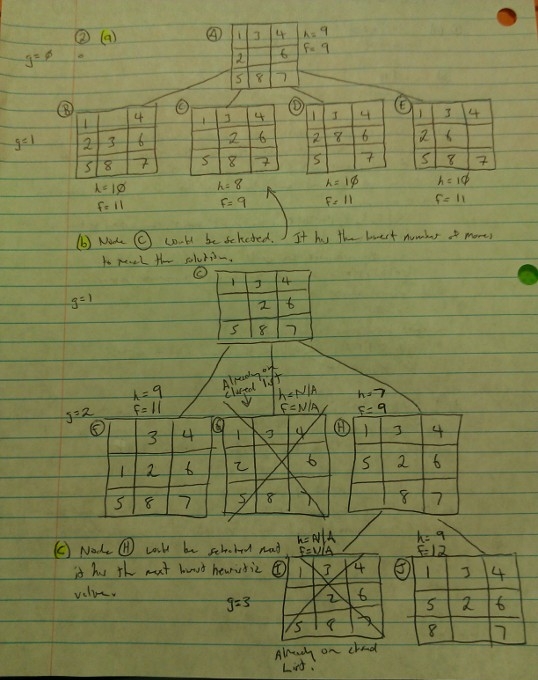 ② (a)
g=∅
Ⓐ
1 3 4
2 6
5 8 7
h=9
f=9
g=1
Ⓑ
1 4
2 3 6
5 8 7
h=1∅
f=11
Ⓒ
1 3 4
2 6
5 8 7
h=8
f=9
Ⓓ
1 3 4
2 8 6
5 7
h=1∅
f=11
Ⓔ
1 3 4
2 6
5 8 7
h=1∅
f=11
(b) Node Ⓒ would be selected. It has the lowest number of moves
to reach the solution.
g=1
Ⓒ
1 3 4
2 6
5 8 7
g=2
h=9
f=11
Ⓕ
3 4
1 2 6
5 8 7
Already on
closed list
h=N/A
F=N/A
1 3 4
2 6
5 8 7
h=7
f=9
Ⓗ
1 3 4
5 2 6
8 7
(c) Node Ⓗ would be selected next
it has the next lowest heuristic
value.
g=3
h=N/A
F=N/A
Ⓘ
1 3 4
2 6
5 8 7
Already on closed
List.
h=9
f=12
Ⓙ
1 3 4
5 2 6
8 7